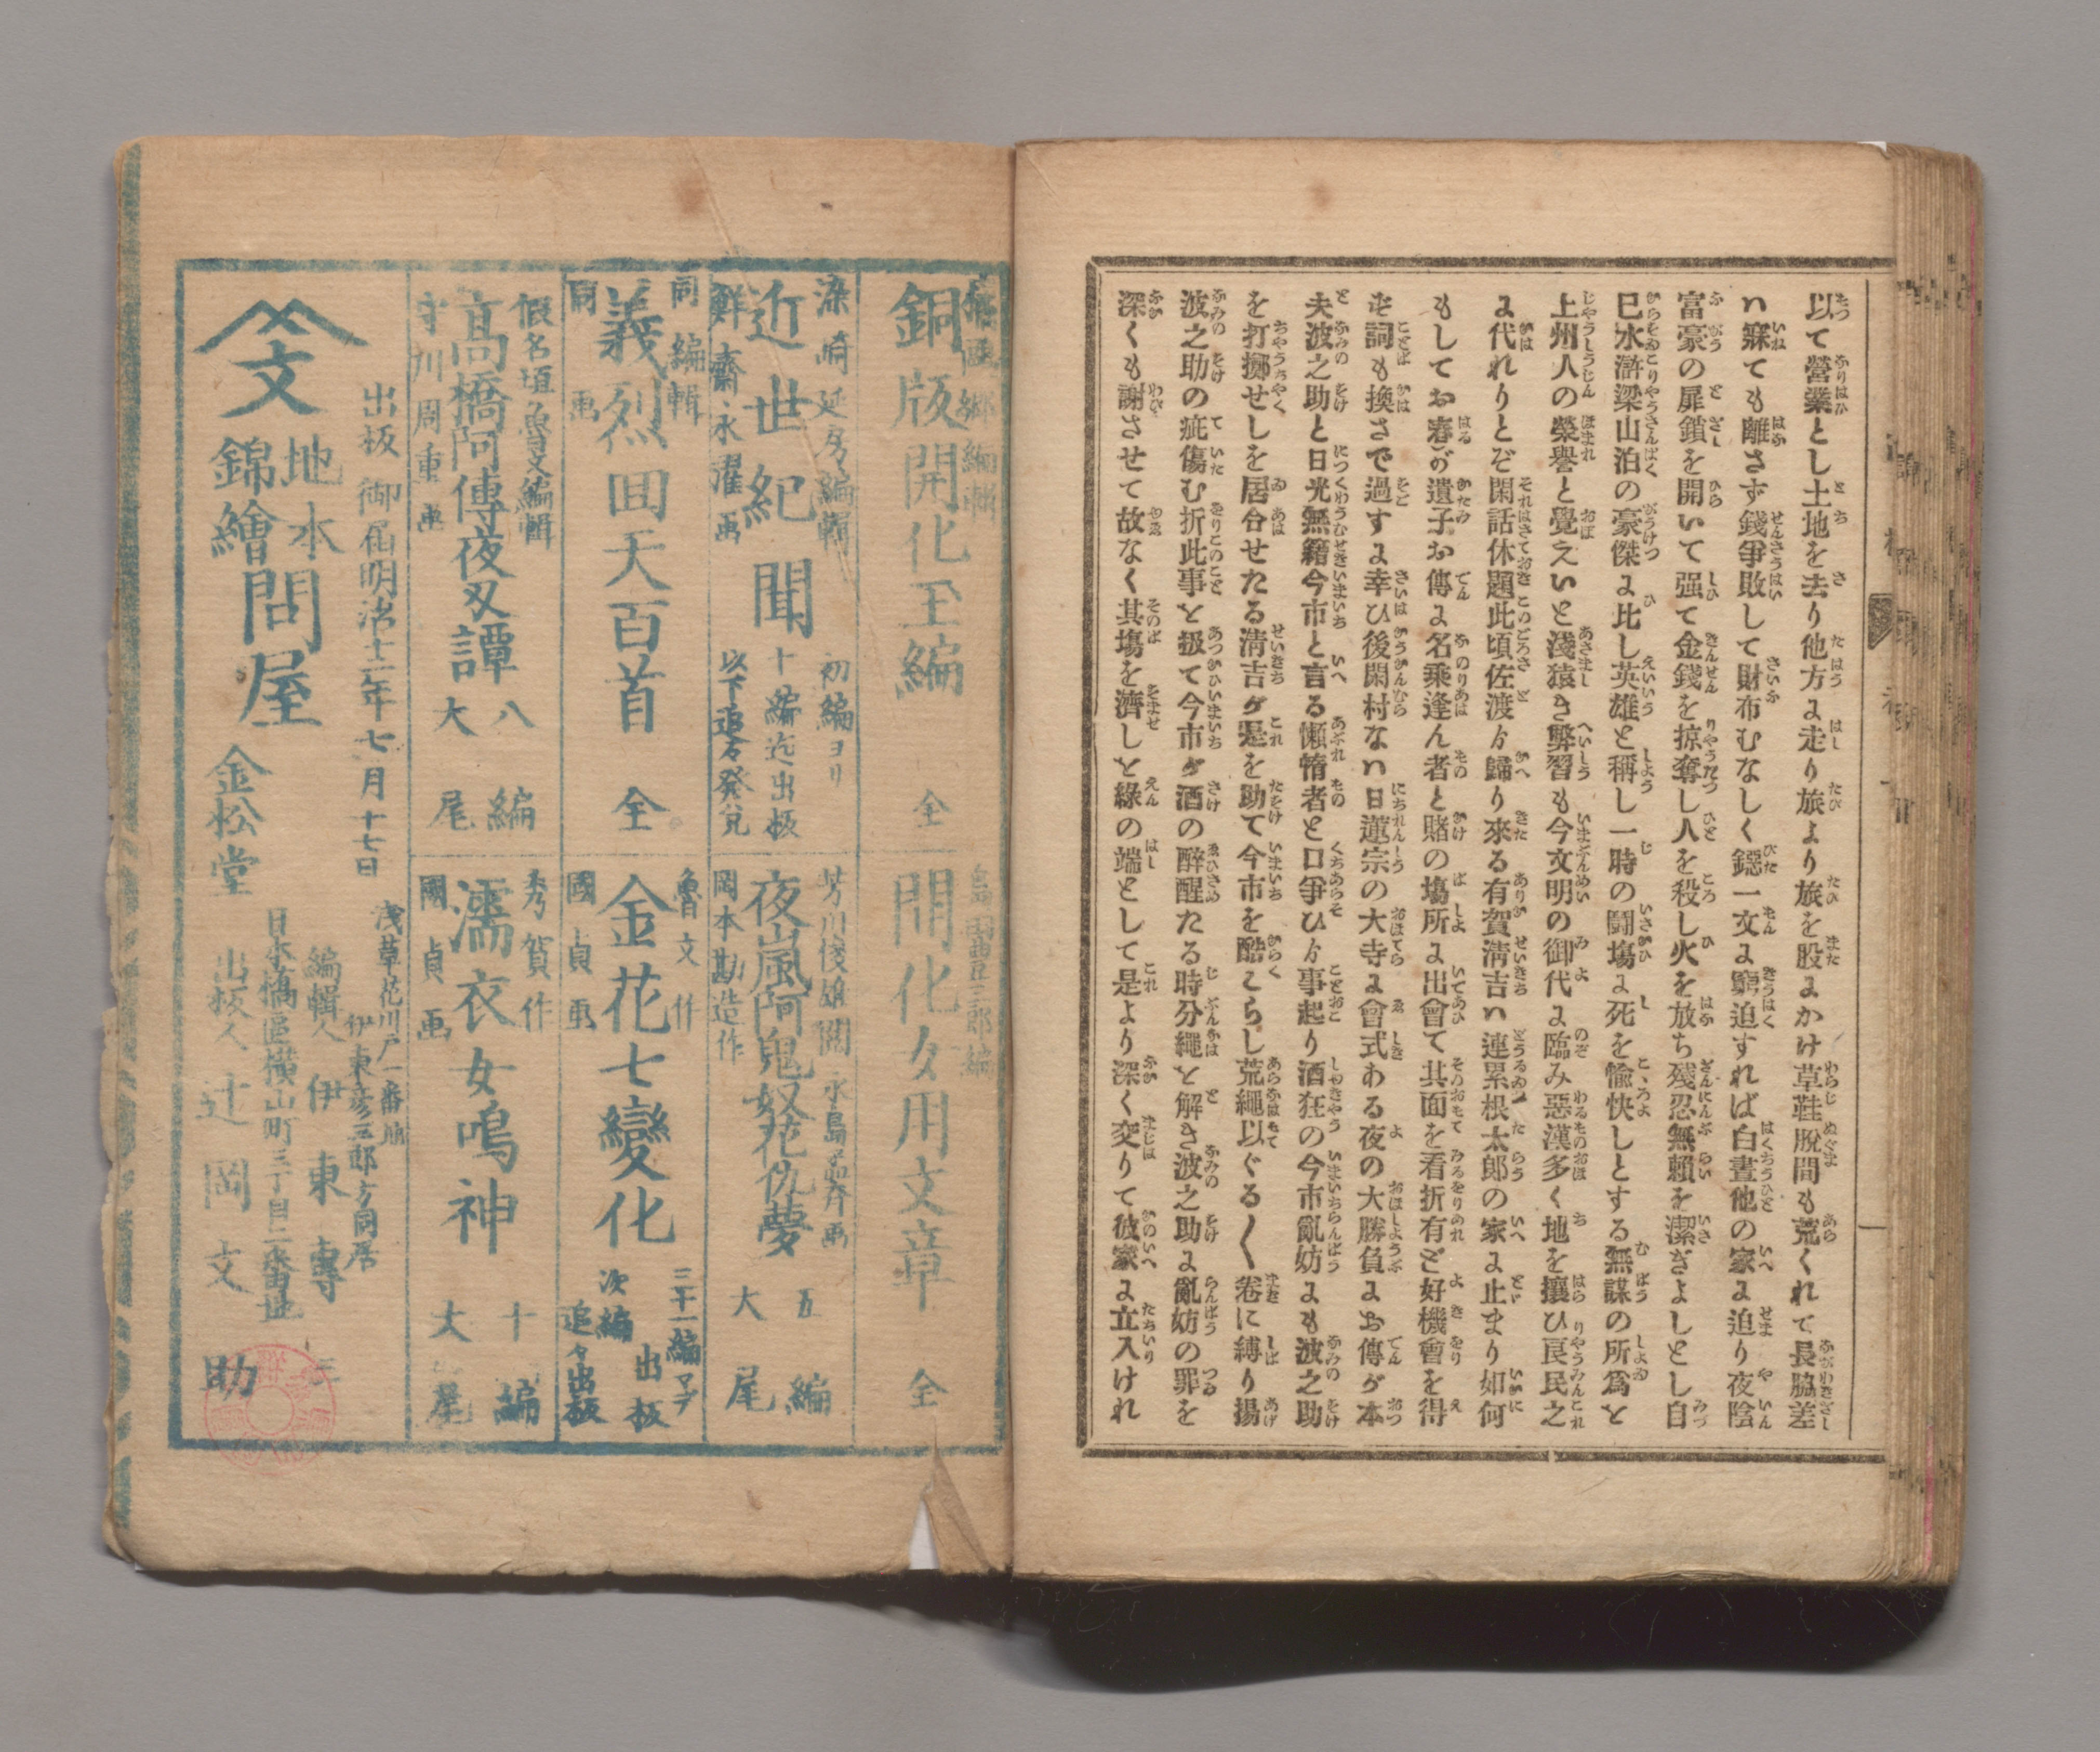 以て營業とし土地を去り他方に走り旅より旅を股にかけ草鞋脱間も荒くれて長脇差
ハ寐ても離さず錢爭敗して財布むなしく鐚一文に窮迫すれば白晝他の家に迫り夜陰
富豪の扉鎖を開いて强て金錢を掠奪し人を殺し火を放ち殘忍無賴を潔ぎよしとし自
己水滸梁山泊の豪傑に比し英雄と稱し一時の鬪塲に死を愉快しとする無謀の所爲と
上州人の榮譽と覺えいと淺猿き弊習も今文明の御代に臨み惡漢多く地を攘ひ良民之
に代れりとぞ閑話休題此頃佐渡ゟ歸り來る有賀淸吉ハ連累根太郎の家に止まり如何
もしてお春が遺子お傳に名乘逢ん者と賭の塲所に出會て其面を看折有ど好機會を得
ず詞も換さで過すに幸ひ後閑村なハ日蓮宗の大寺に會式ある夜の大勝負にお傳が本
夫波之助と日光無籍今市と言る懶惰者と口爭ひゟ事起り酒狂の今市亂妨にも波之助
を打擲せしを居合せたる淸吉が是を助て今市を酷こらし荒繩以ぐる〱卷に縛り揚
波之助の疵傷む折此事を扱て今市が酒の醉醒たる時分繩を解き波之助に亂妨の罪を
深くも謝させて故なく其塲を濟しを緣の端として是より深く交りて彼家に立入けれ
銅版開化玉編 全
開化女用文章 全
染崎延房編輯
近世紀聞
鮮齋永濯画
初編ヨリ
十編迄出板
以下追々發兌
芳川俊雄閲 永島孟齊画
夜嵐阿鬼奴花仇夢
岡本勘造作
五編
大尾
同編輯
義烈回天百首 全
同画
魯文作
金花七變化
國貞画
三十一編マデ
出板
次編
追々出板
假名垣魯文編輯
髙橋阿傳夜叉譚
守川周重画
八編
大尾
秀賀作
濡衣女鳴神
國貞画
十編
大尾
出板御届明治十二年七月十七日
淺草花川戸一番地
伊東彦三郎方同居
編輯人 伊東專三
日本橋區横山町三丁目二番地
出板人 辻岡文助
文
地本
錦繪
問屋
金松堂